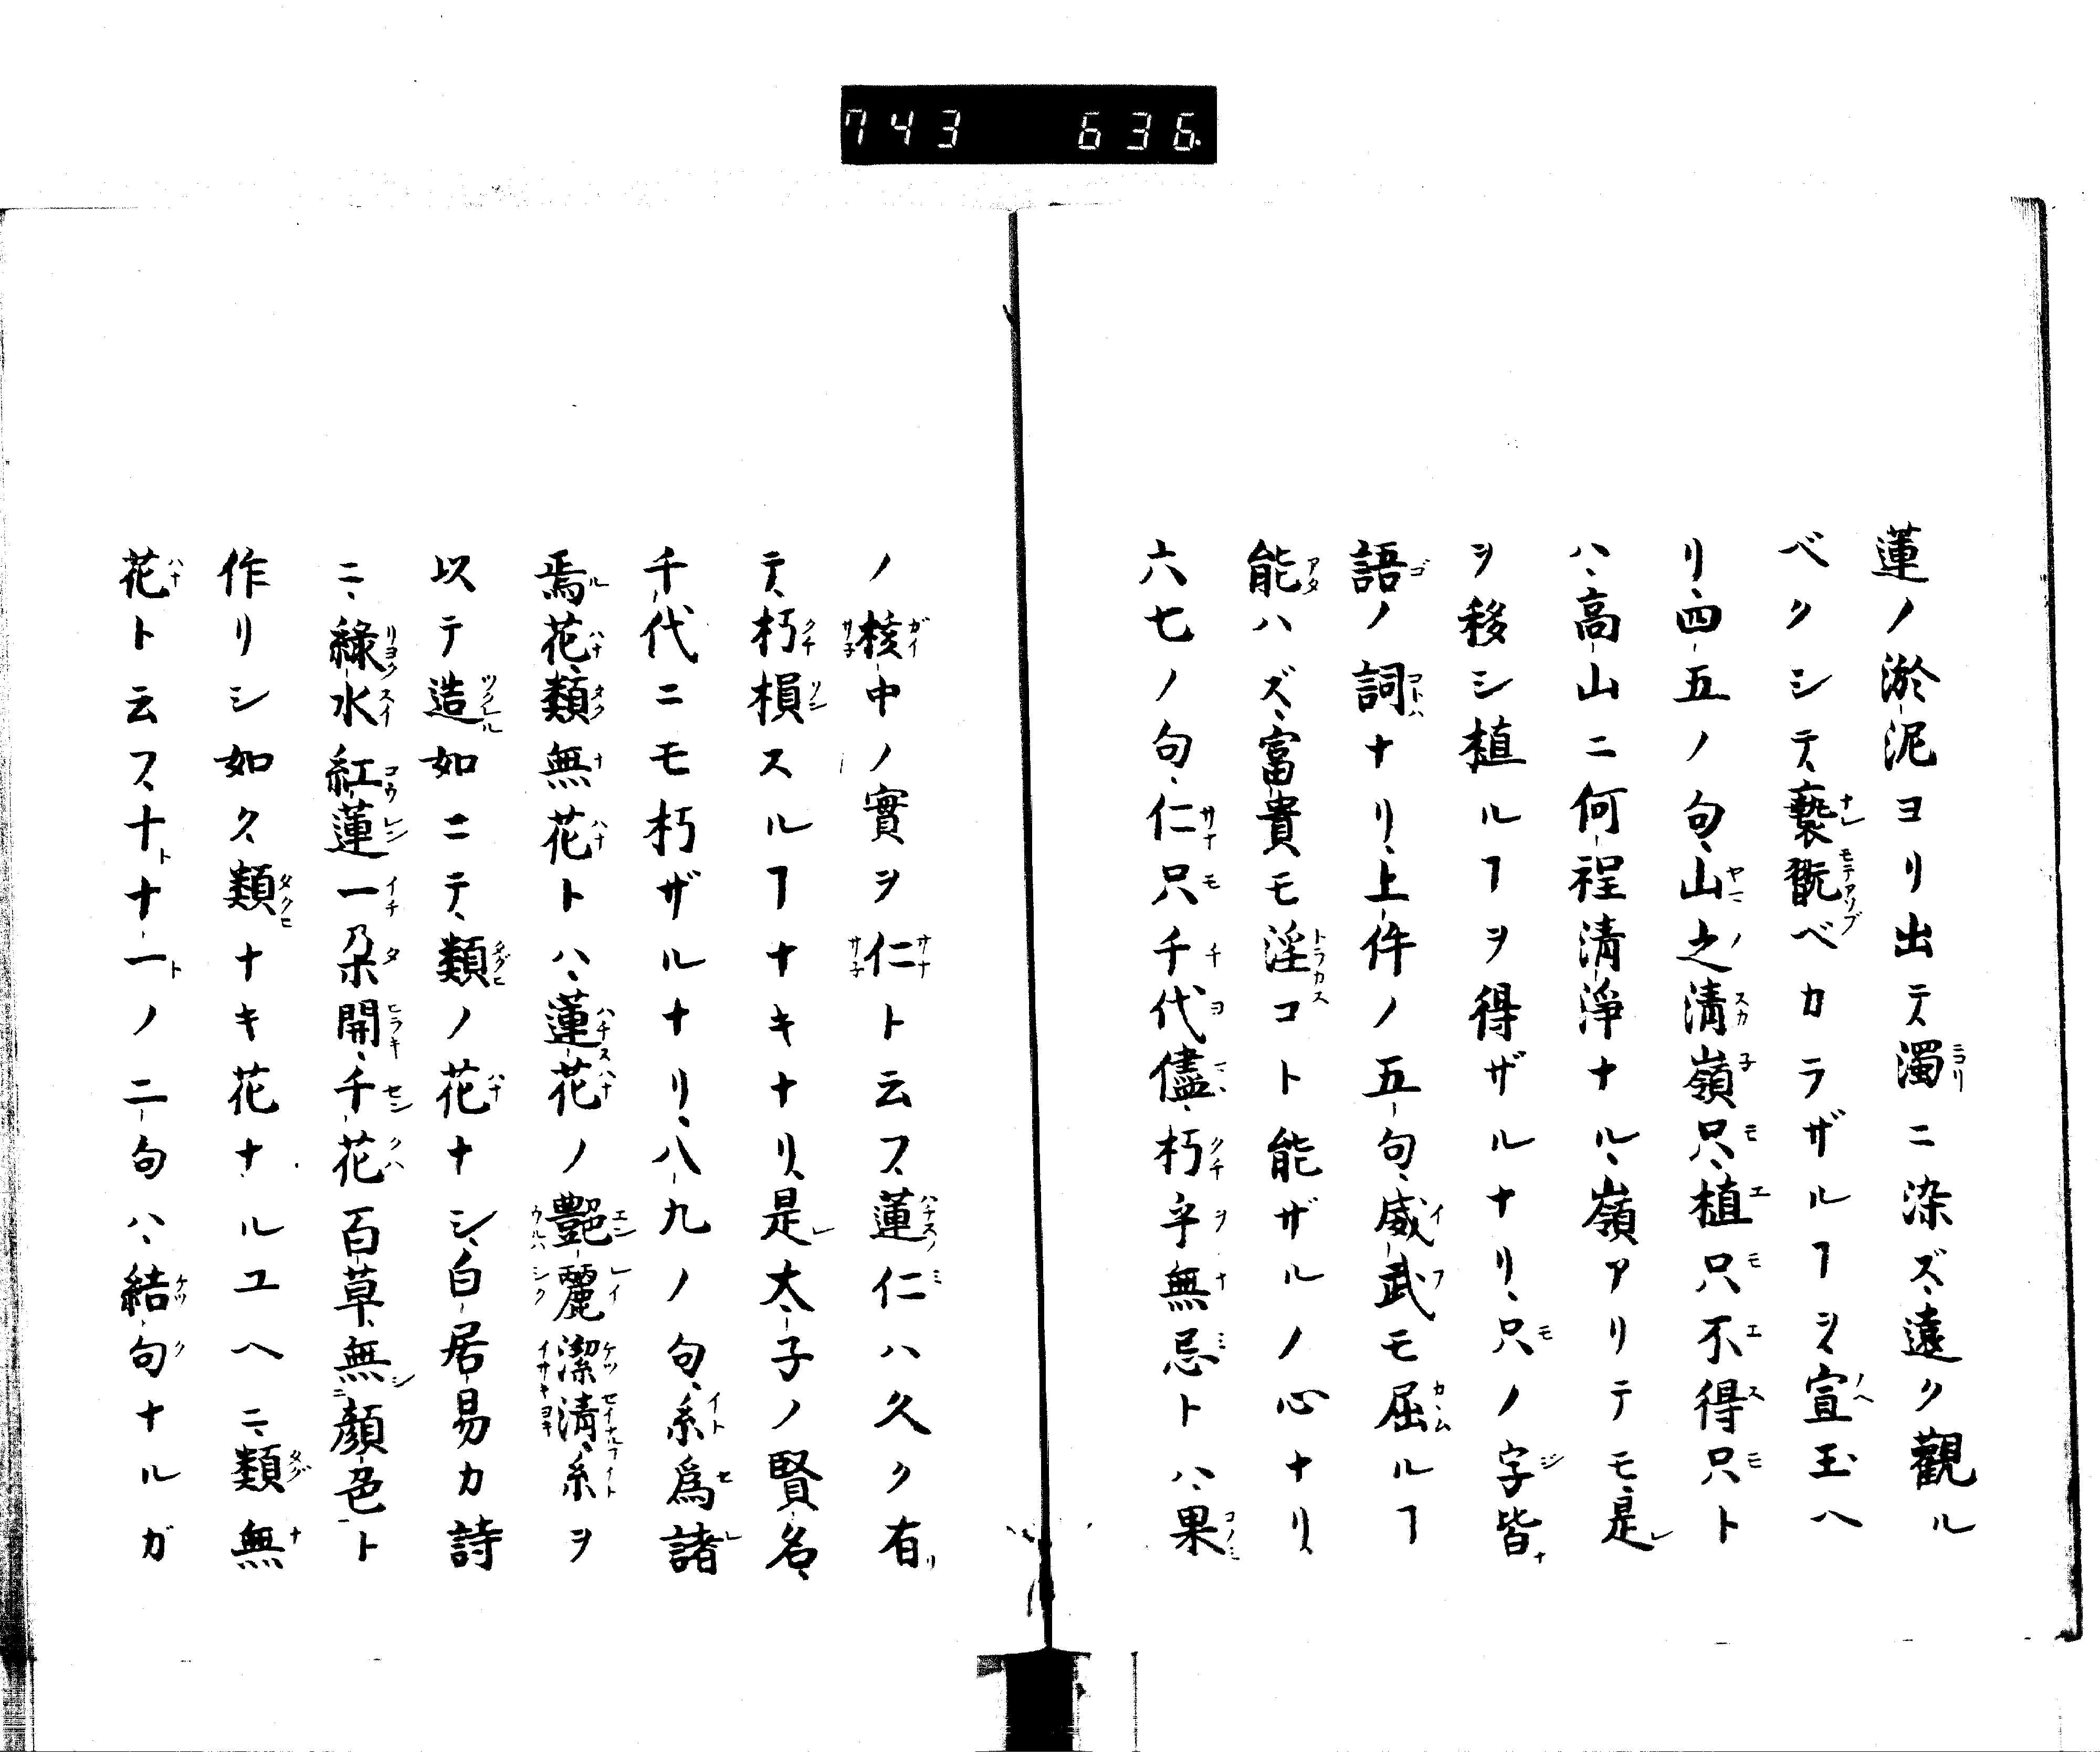 743 636
蓮ノ淤泥ヨリ出テ、濁ニ染ズ、遠ク觀ル
ベクシテ、褻翫ベカラザルヿヲ、宣玉ヘ
リ、四五ノ句、山之清嶺只、植只不得只ト
ハ、高山ニ何程清淨ナル、嶺アリテモ、是
ヲ移シ植ルヿヲ得ザルナリ、只ノ字皆
語ノ詞ナリ、上件ノ五句、威武モ屈ルヿ
能ハズ、富貴モ淫コト能ザルノ心ナリ、
六七ノ句、仁只千代儘、朽乎無忌トハ、果
ノ核中ノ實ヲ仁ト云フ、蓮仁ハ久ク有
テ、朽損スルヿナキナリ、是太子ノ賢名、
千代ニモ朽ザルナリ、八九ノ句、系爲諸
焉花、類無花トハ、蓮花ノ艷麗潔清、系ヲ
以テ造如ニテ、類ノ花ナシ、白居易カ詩
ニ、綠水紅蓮一朶開、千花百草、無顏色ト
作リシ如ク、類ナキ花ナルユヘニ、類無
花ト云フ、十ナ一ノ二句ハ、結句ナルガ